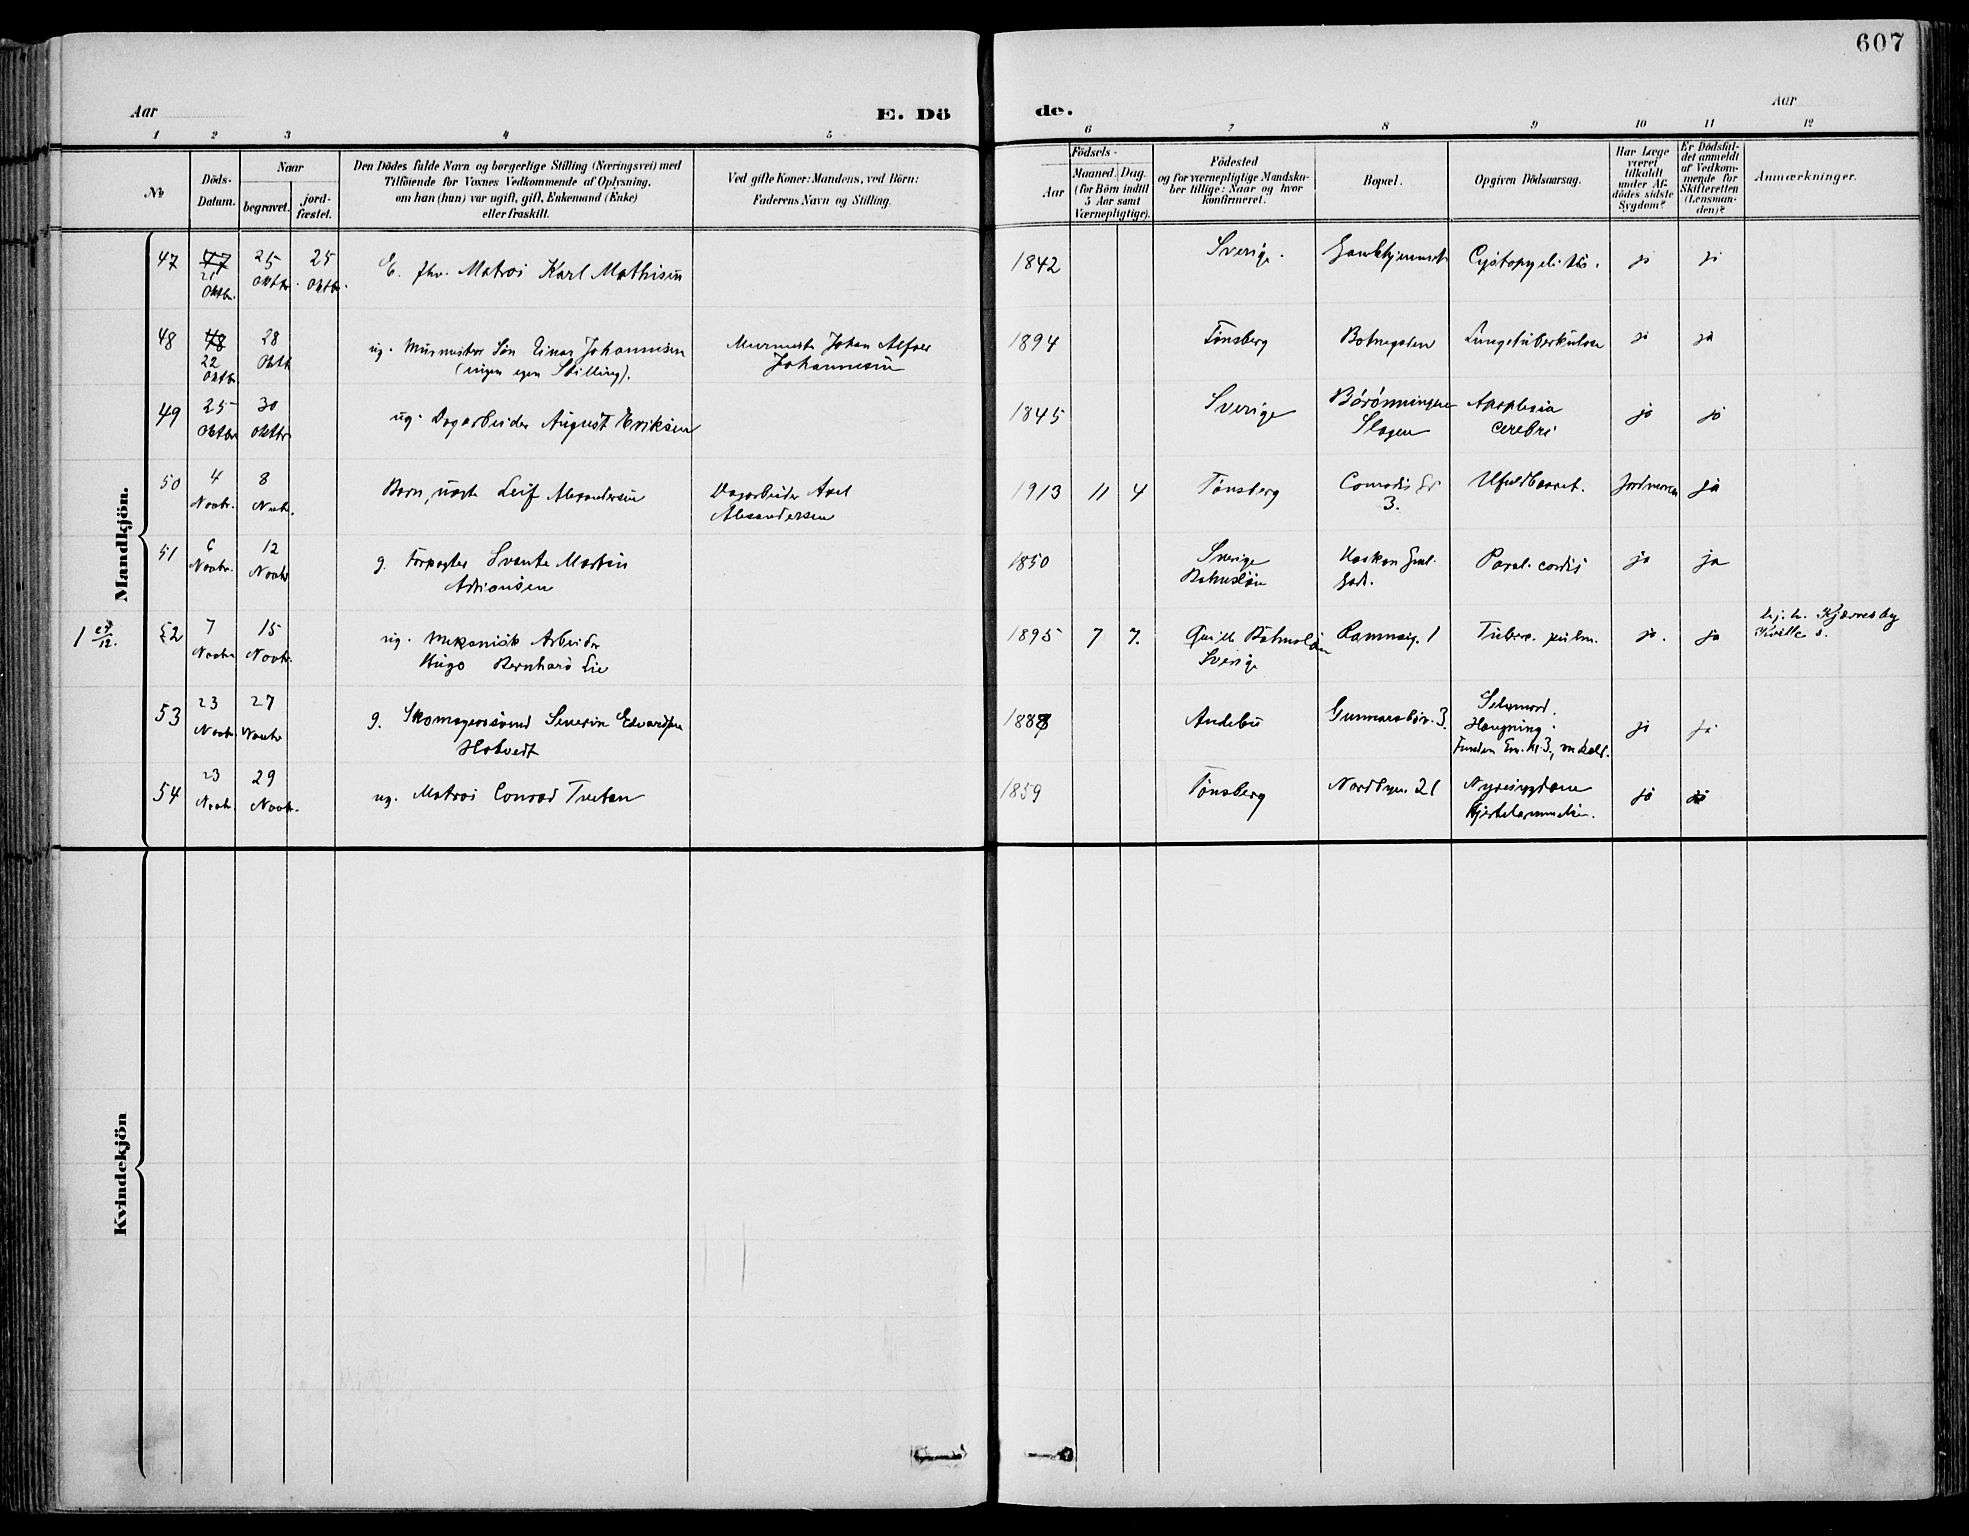 607
Aar
E. Dö
de.
Aar
1 2 3 4 5
6 7 8 9 10 11 12
No
Döds-
Datum.
Naar
begravet.
jord-
fæstet.
Den Dödes fulde Navn og borgerlige Stilling (Næringsvei) med
Tilföiende for Voxnes Vedkommende af Oplysning,
om han (hun) var ugift, gift, Enkemand (Enke)
eller fraskilt.
Ved gifte Koner: Mandens, ved Börn:
Faderens Navn og Stilling.
Födsels-
Aar
Maaned.
Dag.
(for Börn indtil
5 Aar samt
Værnepligtige).
Födested
og for værnepligtige Mandska-
ber tillige: Naar og hvor
konfirmeret.
Bopæl.
Opgiven Dödsaarsag.
Har Læge
været
tilkaldt
under Af-
dödes sidste
Sygdom?
Er Dödsfal-
det anmeldt
af Vedkom-
mende for
Skifteretten
(Lensman-
den)?
Anmærkninger.
Mandkjön.
47 21 Oktbr. 25 Oktbr. 25 Oktbr.
E. fhv. Matros Karl Mathisen
1842 Sverige. Cystopyelitis. ja ja
48 22 Oktbr. 28 Oktb
ug. Murmester Søn Einar Johannesen
(ingen egen Stilling).
Murmester Johan Alfred
Johannesen
1894 Tønsberg Lungetuberkulose ja ja
49 25 Oktbr 30 Oktbr
ug. Dagarbeider August Eriksen
1845 Sverige Slagen
Apoplexia
cerebri
ja ja
50 4 Novbr. 8 Novbr.
Barn, uægte Leif Alexandersen
Dagarbeider Axel
Alexandersen
1913 11 4 Tønsberg Conradis Gd
3.
Ufuldbaaret. Jordmoren ja
51 6 Novbr. 12 Novbr
g. Forpagter Svante Martin
Adriansen
1850 Sverige
Bohuslän
Haakon Gml.
Gade.
Paral. cordis ja ja
1 27/12.
52 7 Novbr 15 Novbr.
ug. Mekanisk Arbeider
Hugo Bernhard Lie
1895 7 7. Qville Bohuslän
Sverige
Ramnsig. 1
Tuberc. pulm. ja. ja
Kjærnesby
Kville s.
53 23 Novbr. 27 Novbr
g. Skomagersvend Severin Edvardsen
Hotvedt
1888 Andebu Gunnarsbø. 3.
Selvmord.
Hængning.
ja ja
54 23 Novbr. 29 Novbr.
ug. Matros Conrad Tveten
1859 Tønsberg Nordbyen 21
Nyresygdom
Hjertelammelse.
ja ja
Kvindekjön